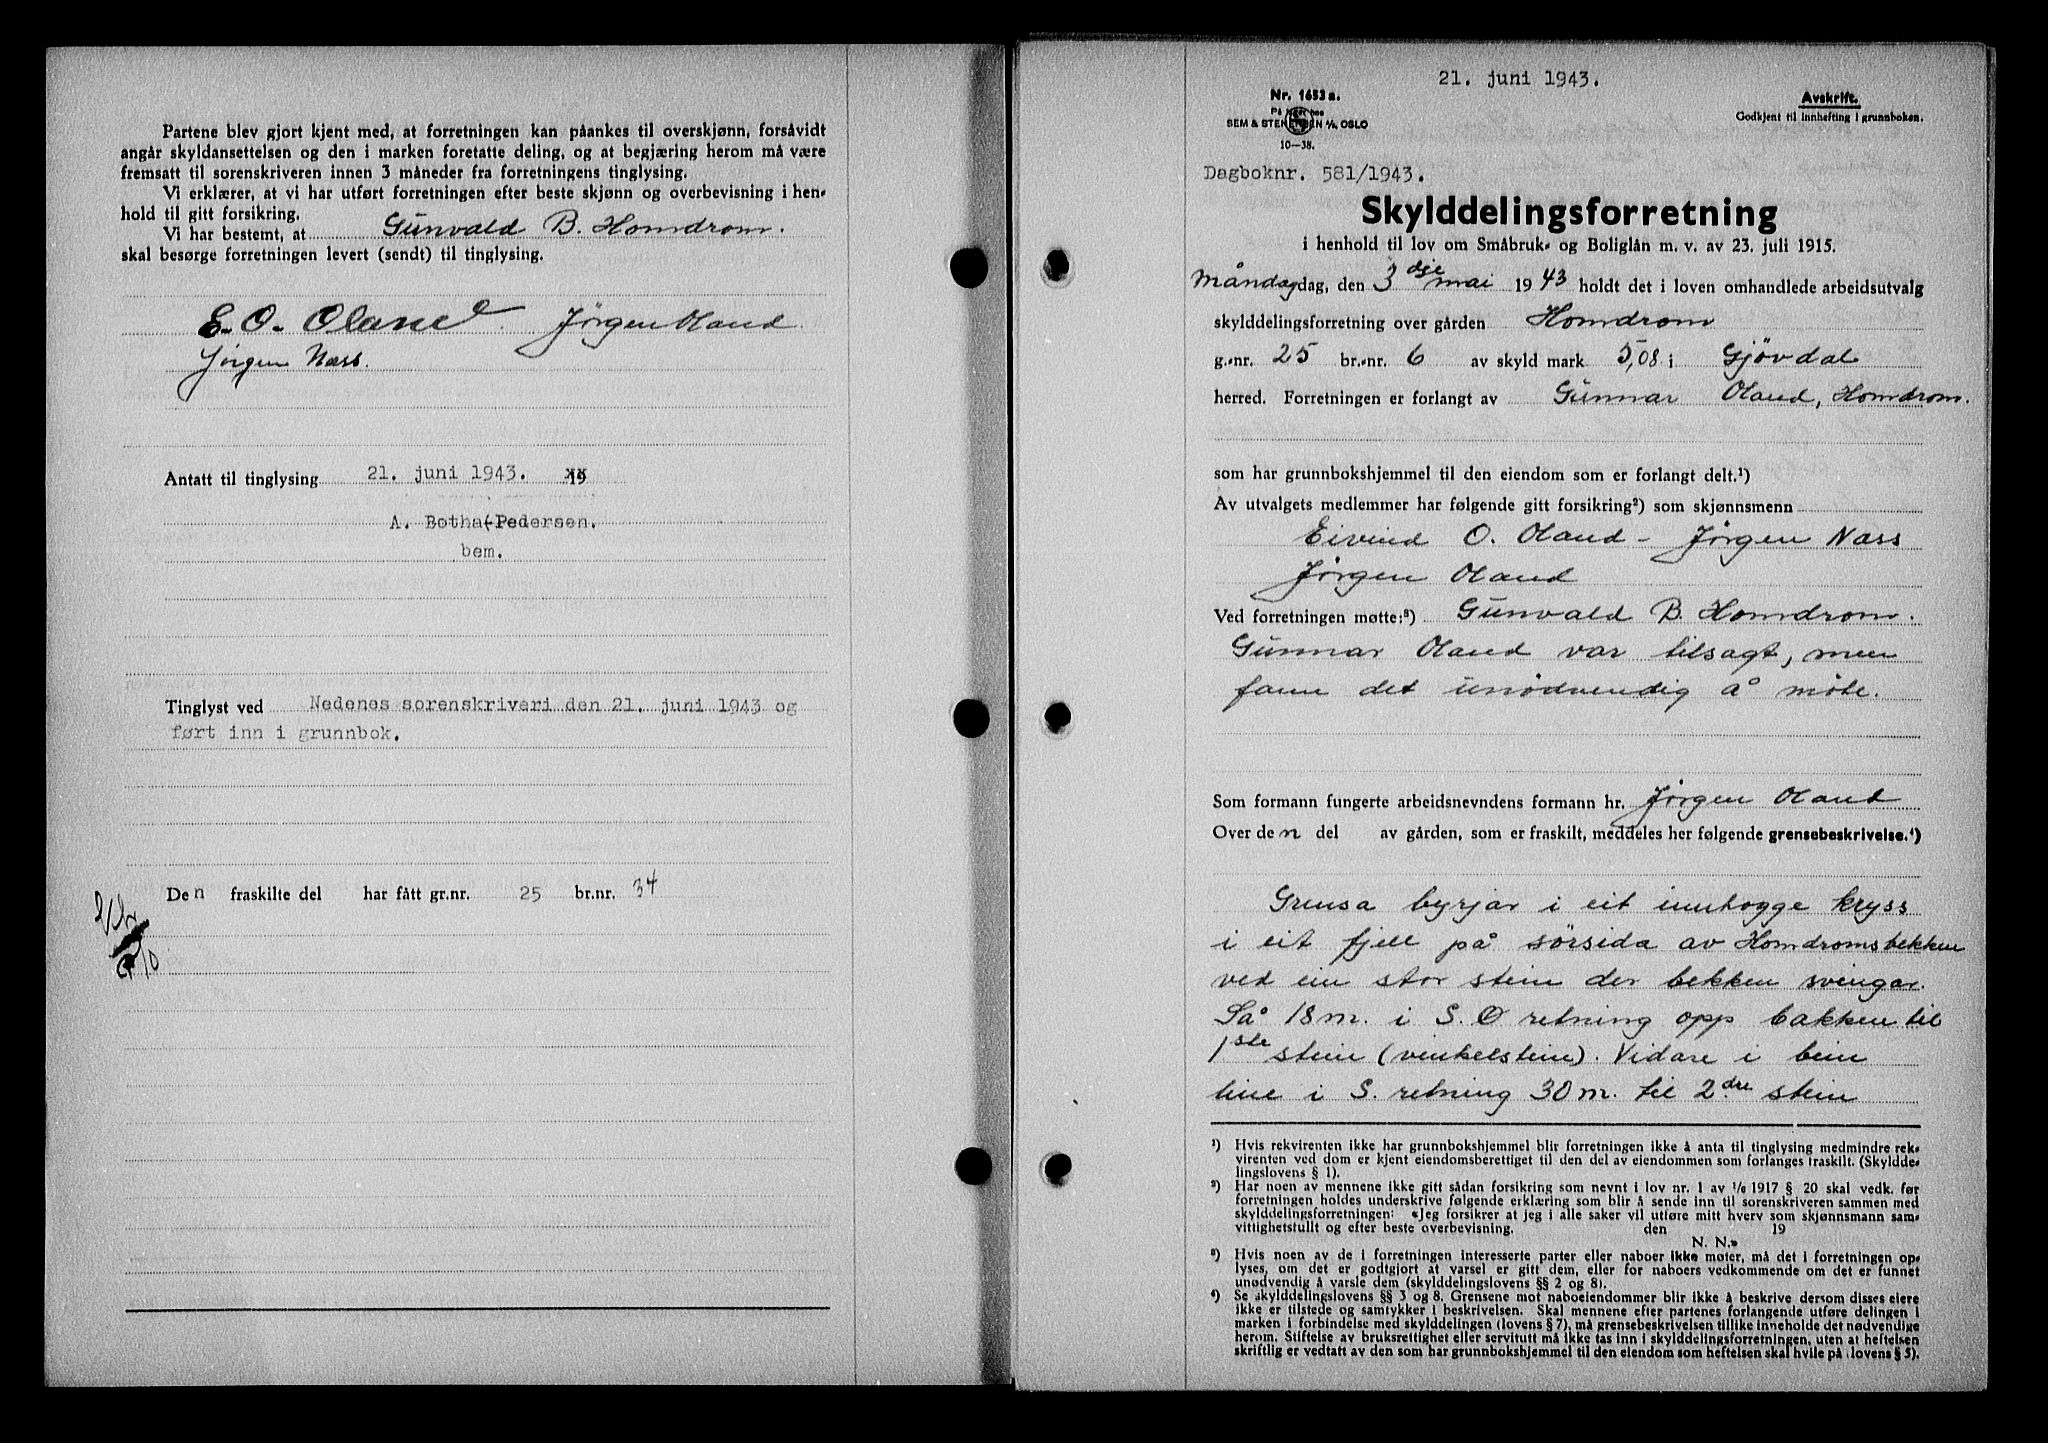 Partene blev gjort kjent med, at forretningen kan påankes til overskjønn, forsåvidt
angår skyldansettelsen og den i marken foretatte deling, og at begjæring herom må være
fremsatt til sorenskriveren innen 3 måneder fra forretningens tinglysing.
Vi erklærer, at vi har utført forretningen efter beste skjønn og overbevisning i hen-
hold til gitt forsikring.
Vi har bestemt, at Gunvald B. Homdrom.
skal besørge forretningen levert (sendt) til tinglysing.
E. O. Oland. Jørgen Oland
Jørgen Næss.
Antatt til tinglysing 21. juni 1943. 19
A. Botha-Pedersen.
bem.
Tinglyst ved Nedenes sorenskriveri den 21. juni 1943 og
ført inn i grunnbok.
Den fraskilte del har fått gr.nr. 25 br.nr. 34
21. juni 1943.
Nr. 1653 a.
På lager hos
SEM & STENERSEN A/S, OSLO
10—38.
Avskrift.
Godkjent til innhefting i grunnboken.
Dagboknr. 581/1943.
Skylddelingsforretning
i henhold til lov om Småbruk- og Boliglån m. v. av 23. juli 1915.
Måndagdag, den 3dje mai 1943 holdt det i loven omhandlede arbeidsutvalg
skylddelingsforretning over gården Homdrom
g.-nr. 25 br.-nr. 6 av skyld mark 5,08 i Gjövdal
herred. Forretningen er forlangt av Gunnar Oland, Homdrom.
som har grunnbokshjemmel til den eiendom som er forlangt delt.¹)
Av utvalgets medlemmer har følgende gitt forsikring²) som skjønnsmenn
Eivind O. Oland - Jørgen Næss
Jørgen Oland
Ved forretningen møtte:³) Gunvald B. Homdrom.
Gunnar Oland var tilsagt, men
fann det unödvendig å möte.
Som formann fungerte arbeidsnevndens formann hr. Jørgen Oland
Over den del av gården, som er fraskilt, meddeles her følgende grensebeskrivelse.⁴)
Grensa byrjar i eit innhogge kryss
i eit fjell på sörsida av Homdromsbekken
ved ein stor stein der bekken svingar.
Så 18 m. i S. Ø retning opp bakken til
1ste stein (vinkelstein). Vidare i bein
line i S. retning 30 m. til 2dre stein
¹) Hvis rekvirenten ikke har grunnbokshjemmel blir forretningen ikke å anta til tinglysing medmindre rek-
virenten ved dom er kjent eiendomsberettiget til den del av eiendommen som forlanges fraskilt. (Skyldde-
lingslovens § 1).
²) Har noen av mennene ikke gitt sådan forsikring som nevnt i lov nr. 1 av 1/6 1917 § 20 skal vedk. før
forretningen holdes underskrive følgende erklæring som blir å sende inn til sorenskriveren sammen med
skylddelingsforretningen: «Jeg forsikrer at jeg i alle saker vil utføre mitt hverv som skjønnsmann sam-
vittighetsfullt og efter beste overbevisning. den 19
N. N.»
³) Hvis noen av de i forretningen interesserte parter eller naboer ikke møter, må det i forretningen op-
lyses, om det er godtgjort at varsel er gitt dem, eller for naboers vedkommende om det er funnet
unødvendig å varsle dem (skylddelingslovens §§ 2 og 8).
⁴) Se skylddelingslovens §§ 3 og 8. Grensene mot naboeiendommer blir ikke å beskrive dersom disses eiere
ikke er tilstede og samtykker i beskrivelsen. Skal mennene efter partenes forlangende utføre delingen i
marken i forbindelse med skylddelingen (lovens § 7), må grensebeskrivelsen tillike inneholde det nødvendige
herom. Stiftelse av bruksrettighet eller servitutt må ikke tas inn i skylddelingsforretningen, uten at heftelsen
skriftlig er vedtatt av den som har grunnbokshjemmel til den eiendom som heftelsen skal hvile på (lovens § 5).